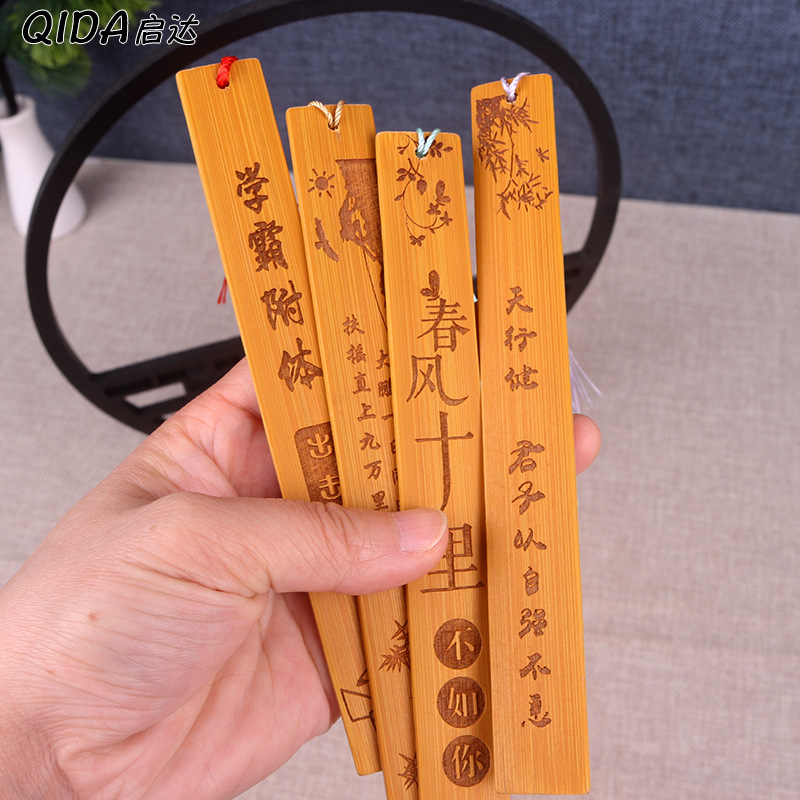 QIDA启达
学霸附体
出击
大鹏一
扶摇直上九万里
春风十里
不如你
天行健
君子以自强不息